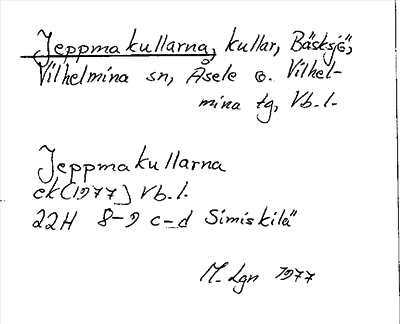 Jeppmakullarna, kullar, Bäsksjö,
Vilhelmina sn, Åsele o. Vilhel-
mina tg, Vb.l.
Jeppmakullarna
ek (1977) Vb.l.
22H 8-9 c-d Simiskilä
M. Lgn 1977